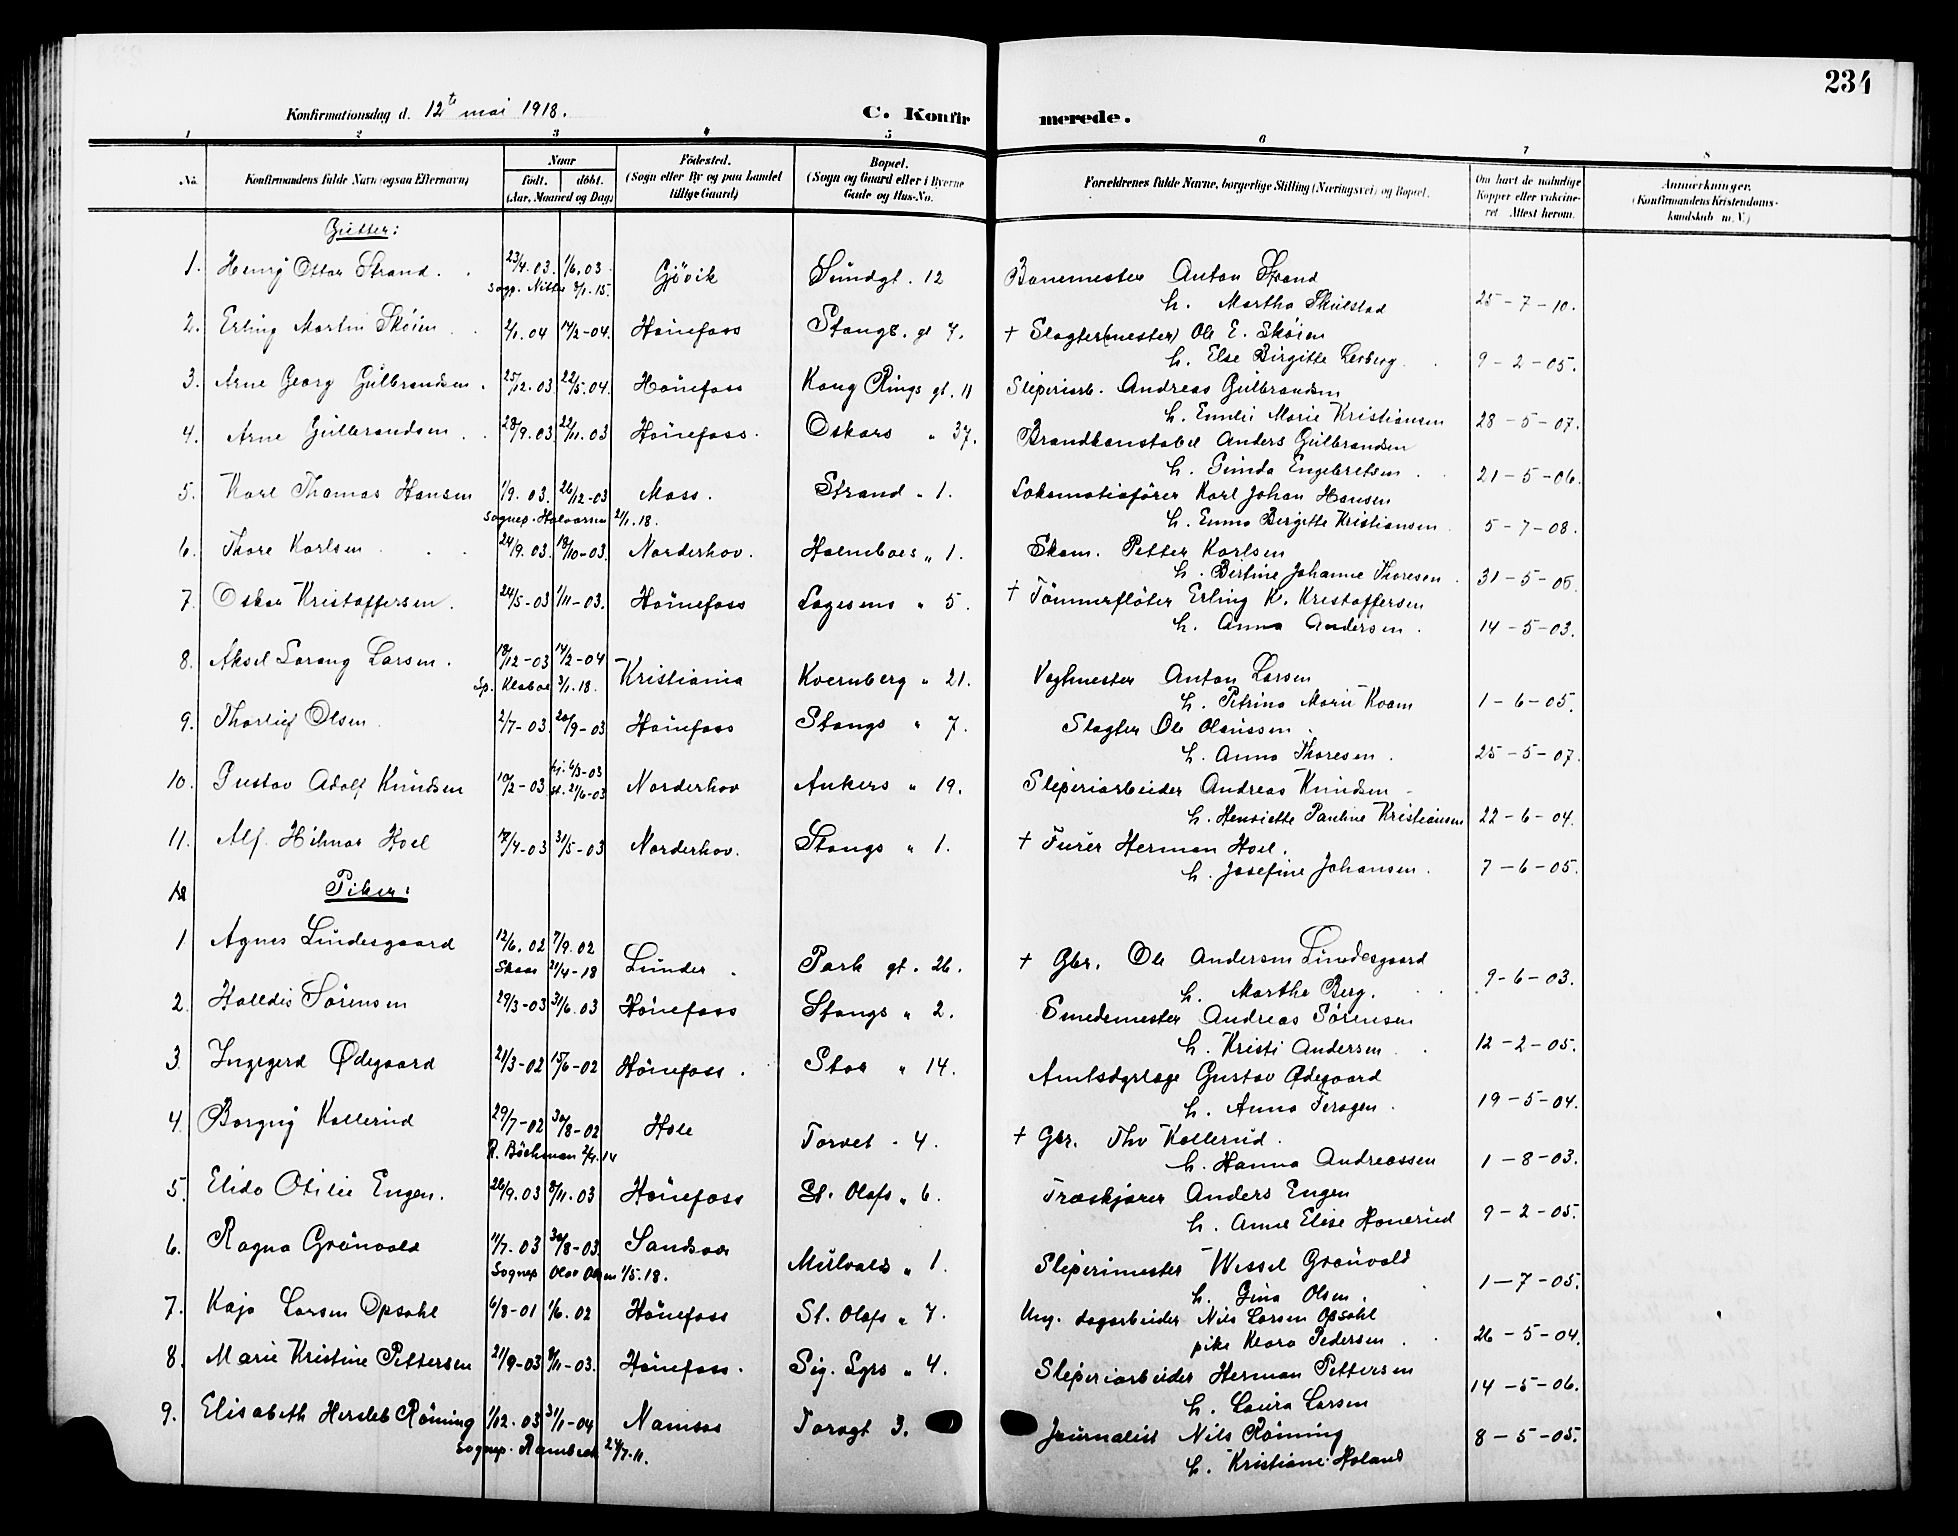 234
Konfirmationsdag d. 12te mai 1918.
C. Konfirmerede.
1 2 3 4 5 6 7 8
No.
Konfirmandens fulde Navn (ogsaa Efternavn)
Naar
født. døbt.
(Aar, Maaned og Dag)
Fødested.
(Sogn eller By og paa Landet
tillige Gaard)
Bopæl.
(Sogn og Gaard eller i Byerne
Gade og Hus-No.
Forældrenes fulde Navne, borgerlige Stilling (Næringsvei) og Bopæl.
Om havt de naturlige
Kopper eller vakcine-
ret. Attest herom.
Anmærkninger.
(Konfirmandens Kristendoms-
kundskab m. V.)
Gutter:
1. Henrij Ottar Strand. 23/4.03. 1/6.03 Gjövik Sundgt. 12 Banemester Anton Strand
sogp. Nitter 8/1.15. h. Martha Skulstad 25-7-10.
2. Erling Martin Sköien 2/1.04 14/2-04. Hönefoss Stangs. gt 7. + Slagter(mester) Ole E. Sköien
h. Else Birgitte Lerberg. 9-2-05.
3. Arne Georg Gulbrandsen. 25/12.03 22/5.04. Hönefoss Kong Rings gt. 11 Sliperiarb. Andreas Gulbrandsen
h. Emilie Marie Kristiansen 28-5-07.
4. Arne Gulbrandsen 28/9.03 22/11.03 Hönefoss. Oskars " 37. Brandkonstabel Anders Gulbrandsen
h. Gunda Engebretsen 21-5-06.
5. Karl Thomas Hansen 1/9.03. 26/12-03 Moss. Strand " 1. Lokomotivförer Karl Johan Hansen
Sognep. Halvorsen 2/1.18. h. Emma Birgitte Kristiansen 5-7-08.
6. Thore Karlsen 24/9.03. 18/10-03. Norderhov. Holmboes " 1. Skom. Petter Karlsen
h. Bertine Johanne Thoresen 31-5-05.
7. Oskar Kristoffersen. 24/5-03 1/11-03. Hönefoss Lagesens " 5. + Tömmerflöter Erling K. Kristoffersen
h. Anna Andersen. 14-5-03.
8. Aksel Sarang Larsen. 18/12-03 14/2-04 Kristiania Kvernberg " 21. Vegtmester Anton Larsen
Sp. Klaboe 3/1.18. h. Petrina Marie Kvam 1-6-05.
9. Thorlief Olsen 2/7-03. 20/9-03 Hönefoss Stangs " 7. Slagter Ole Olaussen
h. Anna Thoresen. 25-5-07.
10. Gustav Adolf Knudsen 10/2-03 hj. 6/3-03 Norderhov Ankers " 19. Sliperiarbeider Andreas Knudsen
st. 21/6-03 h. Henriette Pauline Kristiansen 22-6-04.
11. Alf Hilmar Hoel 12/4-03 31/5-03 Norderhov. Stangs " 1. + Furér Herman Hoel.
h. Josefine Johansen. 7-6-05.
Piker:
1 Agnes Lindesgaard 12/6.02 7/9.02 Lunder. Park gt. 26. + Gbr. Ole Andersen Lindesgaard
Skaar 21/4-18 h. Marthe Berg. 9-6-03.
2. Halldis Sörensen 29/3-03 31/6.03 Hönefoss Stangs " 2. Smedemester Andreas Sörensen
h. Kristi Andersen 12-2-05.
3 Ingegerd Ødegaard 21/3-02 15/6-02 Hönefoss. Stor " 14. Amtsdyrlæge Gustav Ødegaard
h. Anna Feragen. 19-5-04.
4. Borgny Kollerud 29/7-02 30/8-02 Hole Torvet - 4. + Gbr. Thv Kollerud.
R. Böckman 2/4.14 h. Hanna Andreassen 1-8-03.
5. Elida Otilie Engen. 26/9.03 8/11.03 Hönefoss St. Olafs " 6. Træskjærer Anders Engen
h. Anne Elise Honerud 9-2-05.
6. Ragna Grönvold 11/7.03 30/8-03. Sandsvær Mælvalds " 1. Sliperimester Wessel Grönvold
Sognep Olav Olsen 1/5.18. h. Gina Olsen. 1-7-05.
7. Kaja Larsen Opsahl 6/8-01 1/6.02 Hönefoss St. Olafs " 7. Ung. dagarbeider Nils Larsen Opsahl
pike Klara Pedersen. 26-5-04.
8. Marie Kristine Pettersen 21/9-03 8/11-03. Hönefoss. Sig. Syrs " 4. Sliperiarbeider Herman Pettersen
h. Laura Larsen 14-5-06.
9. Elisabeth Hersleb Röming 1/12.03 31/1-04 Namsos Torvgt 3. Journalist Nils Röming
Sognep. Rambech 24/7.11. h. Kristiane Holand 8-5-05.